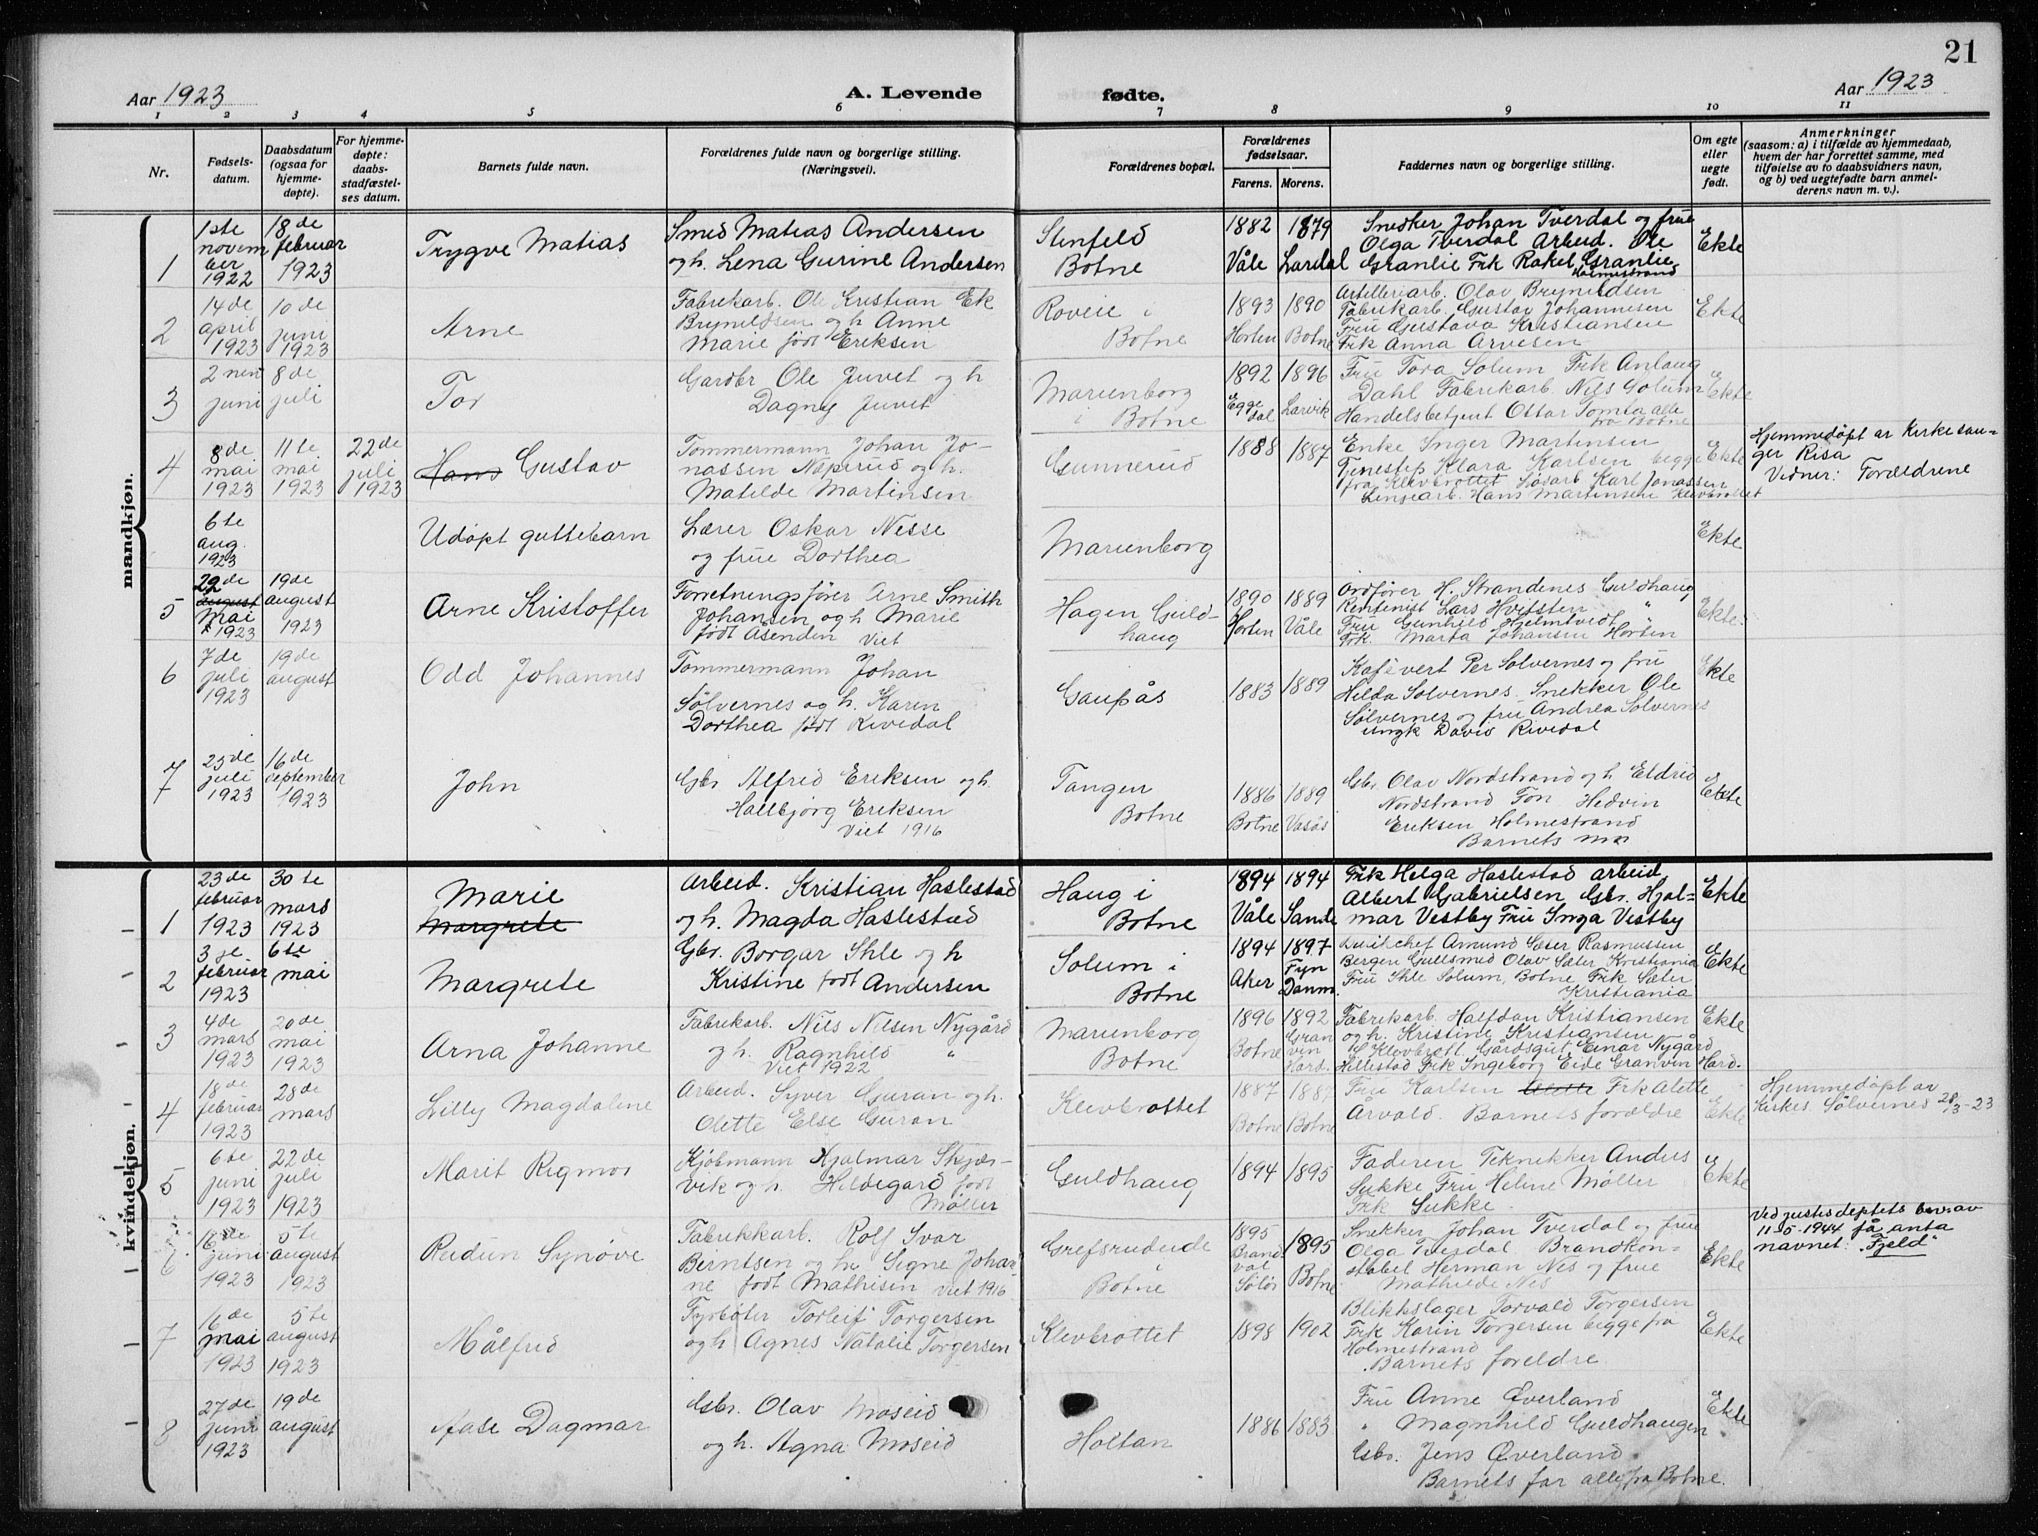 21
Aar 1923
A. Levende
fødte.
Aar 1923
1 2 3 4 5 6 7 8 9 10 11
Nr.
Fødsels-
datum.
Daabsdatum
(ogsaa for
hjemme-
døpte).
For hjemme-
døpte:
daabs-
stadfæstel-
ses datum.
Barnets fulde navn.
Forældrenes fulde navn og borgerlige stilling.
(Næringsvei).
Forældrenes bopæl.
Forældrenes
fødselsaar.
Farens. Morens.
Faddernes navn og borgerlige stilling.
Om egte
eller
uegte
født.
Anmerkninger
(saasom: a) i tilfælde av hjemmedaab,
hvem der har forrettet samme, med
tilføielse av to daabsvidners navn,
og b) ved uegtefødte barn anmel-
derens navn m. v.).
mandkjøn.
1
1ste
novem
ber
1922
18de
februar
1923
Trygve Matias
Smed Matias Andersen
og h. Lena Gurine Andersen
Stenfeld
Botne
1882
Våle
1879
Lardal
Snedker Johan Tverdal og frue
Olga Tverdal Arbeid. Ole
Granlie Frk Rakel Granlie
Holmestrand
Ekte
2
14de
april
1923
10de
juni
1923
Arne
Fabrikarb. Ole Kristian Ek
Brynildsen og h. Anne
Marie født Eriksen
Roveie i
Botne
1893
Horten
1890
Botne
Artilleriarb. Olav Brynildsen
Fabrikarb. Gustav Johannesen
Fru Gustava Kristiansen
Frk Anna Arvesen
Ekte
3
2nen
juni
8de
juli
Tor
Gardbr Ole Juvet og h
Dagny Juvet
Marienborg
i Botne
1892
Egge
dal
1896
Larvik
Fru Tora Solum Frk Anlaug
Dahl Fabrikarb Nils Solum
Handelsbetjent Ottar Tomta alle
fra Botne
Ekte
4
8de
mai
1923
11te
mai
1923
22de
juli
1923
Hans Gustav
Tømmermann Johan Jo-
nassen Næprud og h.
Matilde Martinsen
Gunnerud
1888
1887
Enke Inger Martinsen
Tjenestep Klara Karlsen begge
fra Klevbrottet Løsarb Karl Jonassen
Linjearb. Hans Martinsen Klevbrottet
Ekte
Hjemmedøpt av Kirkesan-
ger Risa
Vidner: Forældrene
6te
aug.
1923
Udøpt guttebarn
Lærer Oskar Nesse
og frue Dorthea
Marienborg
Ekte
5
29de
august
Mai
1923
19de
august
1923
Arne Kristoffer
Forretningsfører Arne Smith
Johansen og h Marie
født Åsenden Viet
Hagen Guld-
haug
1890
Horten
1889
Våle
Ordfører H. Strandenes Guldhaug
Rentenist Lars Hvitsten "
Fru Gunhild Hjelmtvedt "
Frk. Marta Johansen Horten
Ekte
6
7de
juli
1923
19de
august
Odd Johannes
Tømmermann Johan
Sølvernes og h. Karen
Dorthea født Rivedal
Gaupås
1883
1889
Kafévert Per Sølvernes og fru
Hilda Sølvernes. Snekker Ole
Sølvernes og fru Andrea Sølvernes
Ungk David Rivedal
Ekte
7
25de
juli
1923
16de
september
1923
John
Gbr Alfred Eriksen og h.
Hallbjørg Eriksen
Viet 1916
Tangen
Botne
1886
Botne
1889
Vasås
Gbr Olav Nordstrand og h Eldrid
Nordstrand Frn Hedvin
Eriksen Holmestrand
Barnets mor
Ekte
kvindekjøn.
1
23de
februar
1923
30te
mars
1923
Marie
Margrete
Arbeid. Kristian Haslestad
og h. Magda Haslestad
Haug i
Botne
1894
Våle
1894
Sande
Frk Helga Haslestad arbeid
Albert Gabrielsen Gbr. Hjal-
mar Vestby Fru Inga Vestby
Ekte
2
3je
februar
1923
6te
mai
Margrete
Gbr. Borgar Ihle og h
Kristine født Andersen
Solum i
Botne
1894
Aker
1897
Fyn
Danm.
Amund Sæter Rasmussen
Bergen Gullsmed Olav Sæter Kristiania
Fru Ihle Solum, Botne Frk Sæter
Kristiania
Ekte
3
4de
mars
1923
20de
mai
1923
Arna Johanne
Fabrikarb. Nils Nilsen Nygård
og h. Ragnhild "
Viet 1922
Marienborg
Botne
1896
Botne
1892
Gran
vin
Hard.
Fabrikarb. Halfdan Kristiansen
og h. Kristine Kristiansen
Klevbrott. Gårdsgut Einar Nygård
Hillestad Frk Ingeborg Eide Granvin Hard.
Ekte
4
18de
februar
1923
28de
mars
Lilly Magdalene
Arbeid. Syver Guran og h.
Olette Else Guran
Klevbrottet
1887
Botne
1887
Botne
Fru Karlsen Alette Frk Alette
Årvold Barnets forældre
Ekte
Hjemmedøpt av
kirkes. Sølvernes 28/3-23
5
6te
juni
1923
22de
juli
1923
Marit Rigmor
Kjøbmann Hjalmar Skjæs-
vik og h. Hildegard født
Møller
Guldhaug
1894
1895
Faderen Teknekker Anders
Sukke Fru Helene Møller
Frk Sukke
Ekte
6
16de
juni
1923
5te
august
1923
Reidun Synøve
Fabrikkarb. Rolf Ivar
Berntsen og h. Signe Johan-
ne født Mathisen viet 1916
Grefsrudeide
Botne
1895
Brand
val
Solør
1895
Botne
Snekker Johan Tverdal og frue
Olga Tverdal Brandkon-
stabel Herman Nes og frue
Mathilde Nes
Ekte
Ved justisdeptets bev. av
11-5-1944 få anta
navnet: "Fjeld"
7
16de
mai
1923
5te
august
1923
Målfrid
Fyrbøter Torleif Torgersen
og h Agnes Natalie Torgersen
Klevbrottet
1898
1902
Blikkslager Torvald Torgersen
Frk Karin Torgersen begge fra
Holmestrand
Barnets foreldre
Ekte
8
27de
juni
1923
19de
august
Aase Dagmar
Gbr. Olav Moseid
og h. Agna Moseid
Holtan
1886
1883
Fru Anne Øverland
" Magnhild Guldhaugen
Gbr. Jens Øverland
Barnets far alle fra Botne.
Ekte